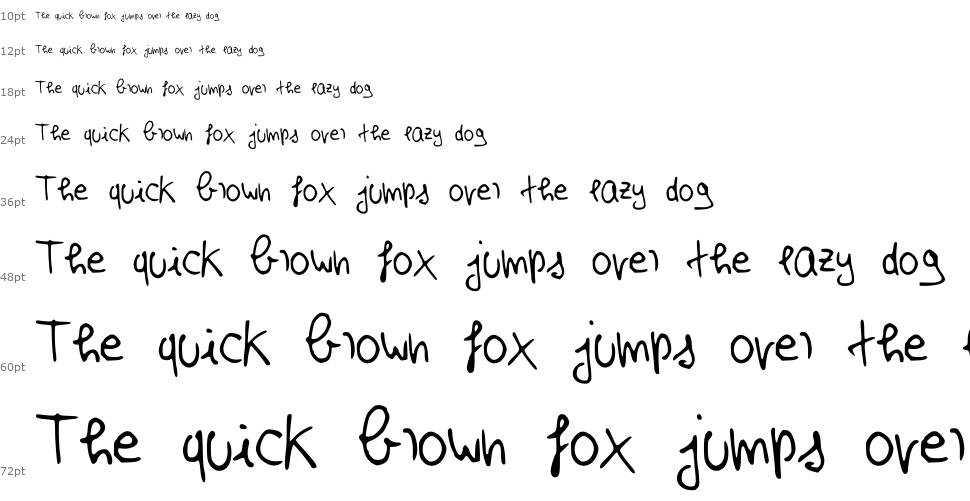 10pt The quick brown fox jumps over the lazy dog
12pt The quick brown fox jumps over the lazy dog
18pt The quick brown fox jumps over the lazy dog
24pt The quick brown fox jumps over the lazy dog
36pt The quick brown fox jumps over the lazy dog
48pt The quick brown fox jumps over the lazy dog
60pt The quick brown fox jumps over the
72pt The quick brown fox jumps over